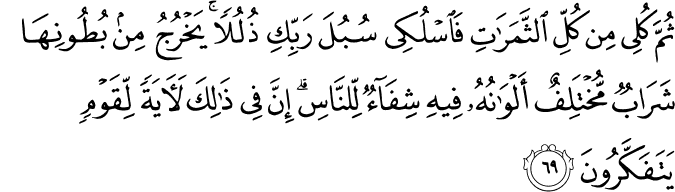 ثُمَّ كُلِى مِن كُلِّ ٱلثَّمَرَٰتِ فَٱسْلُكِى سُبُلَ رَبِّكِ ذُلُلًا ۚ يَخْرُجُ مِنۢ بُطُونِهَا
شَرَابٌ مُّخْتَلِفٌ أَلْوَٰنُهُۥ فِيهِ شِفَآءٌ لِّلنَّاسِ ۗ إِنَّ فِى ذَٰلِكَ لَـَٔايَةً لِّقَوْمٍ
يَتَفَكَّرُونَ ٦٩